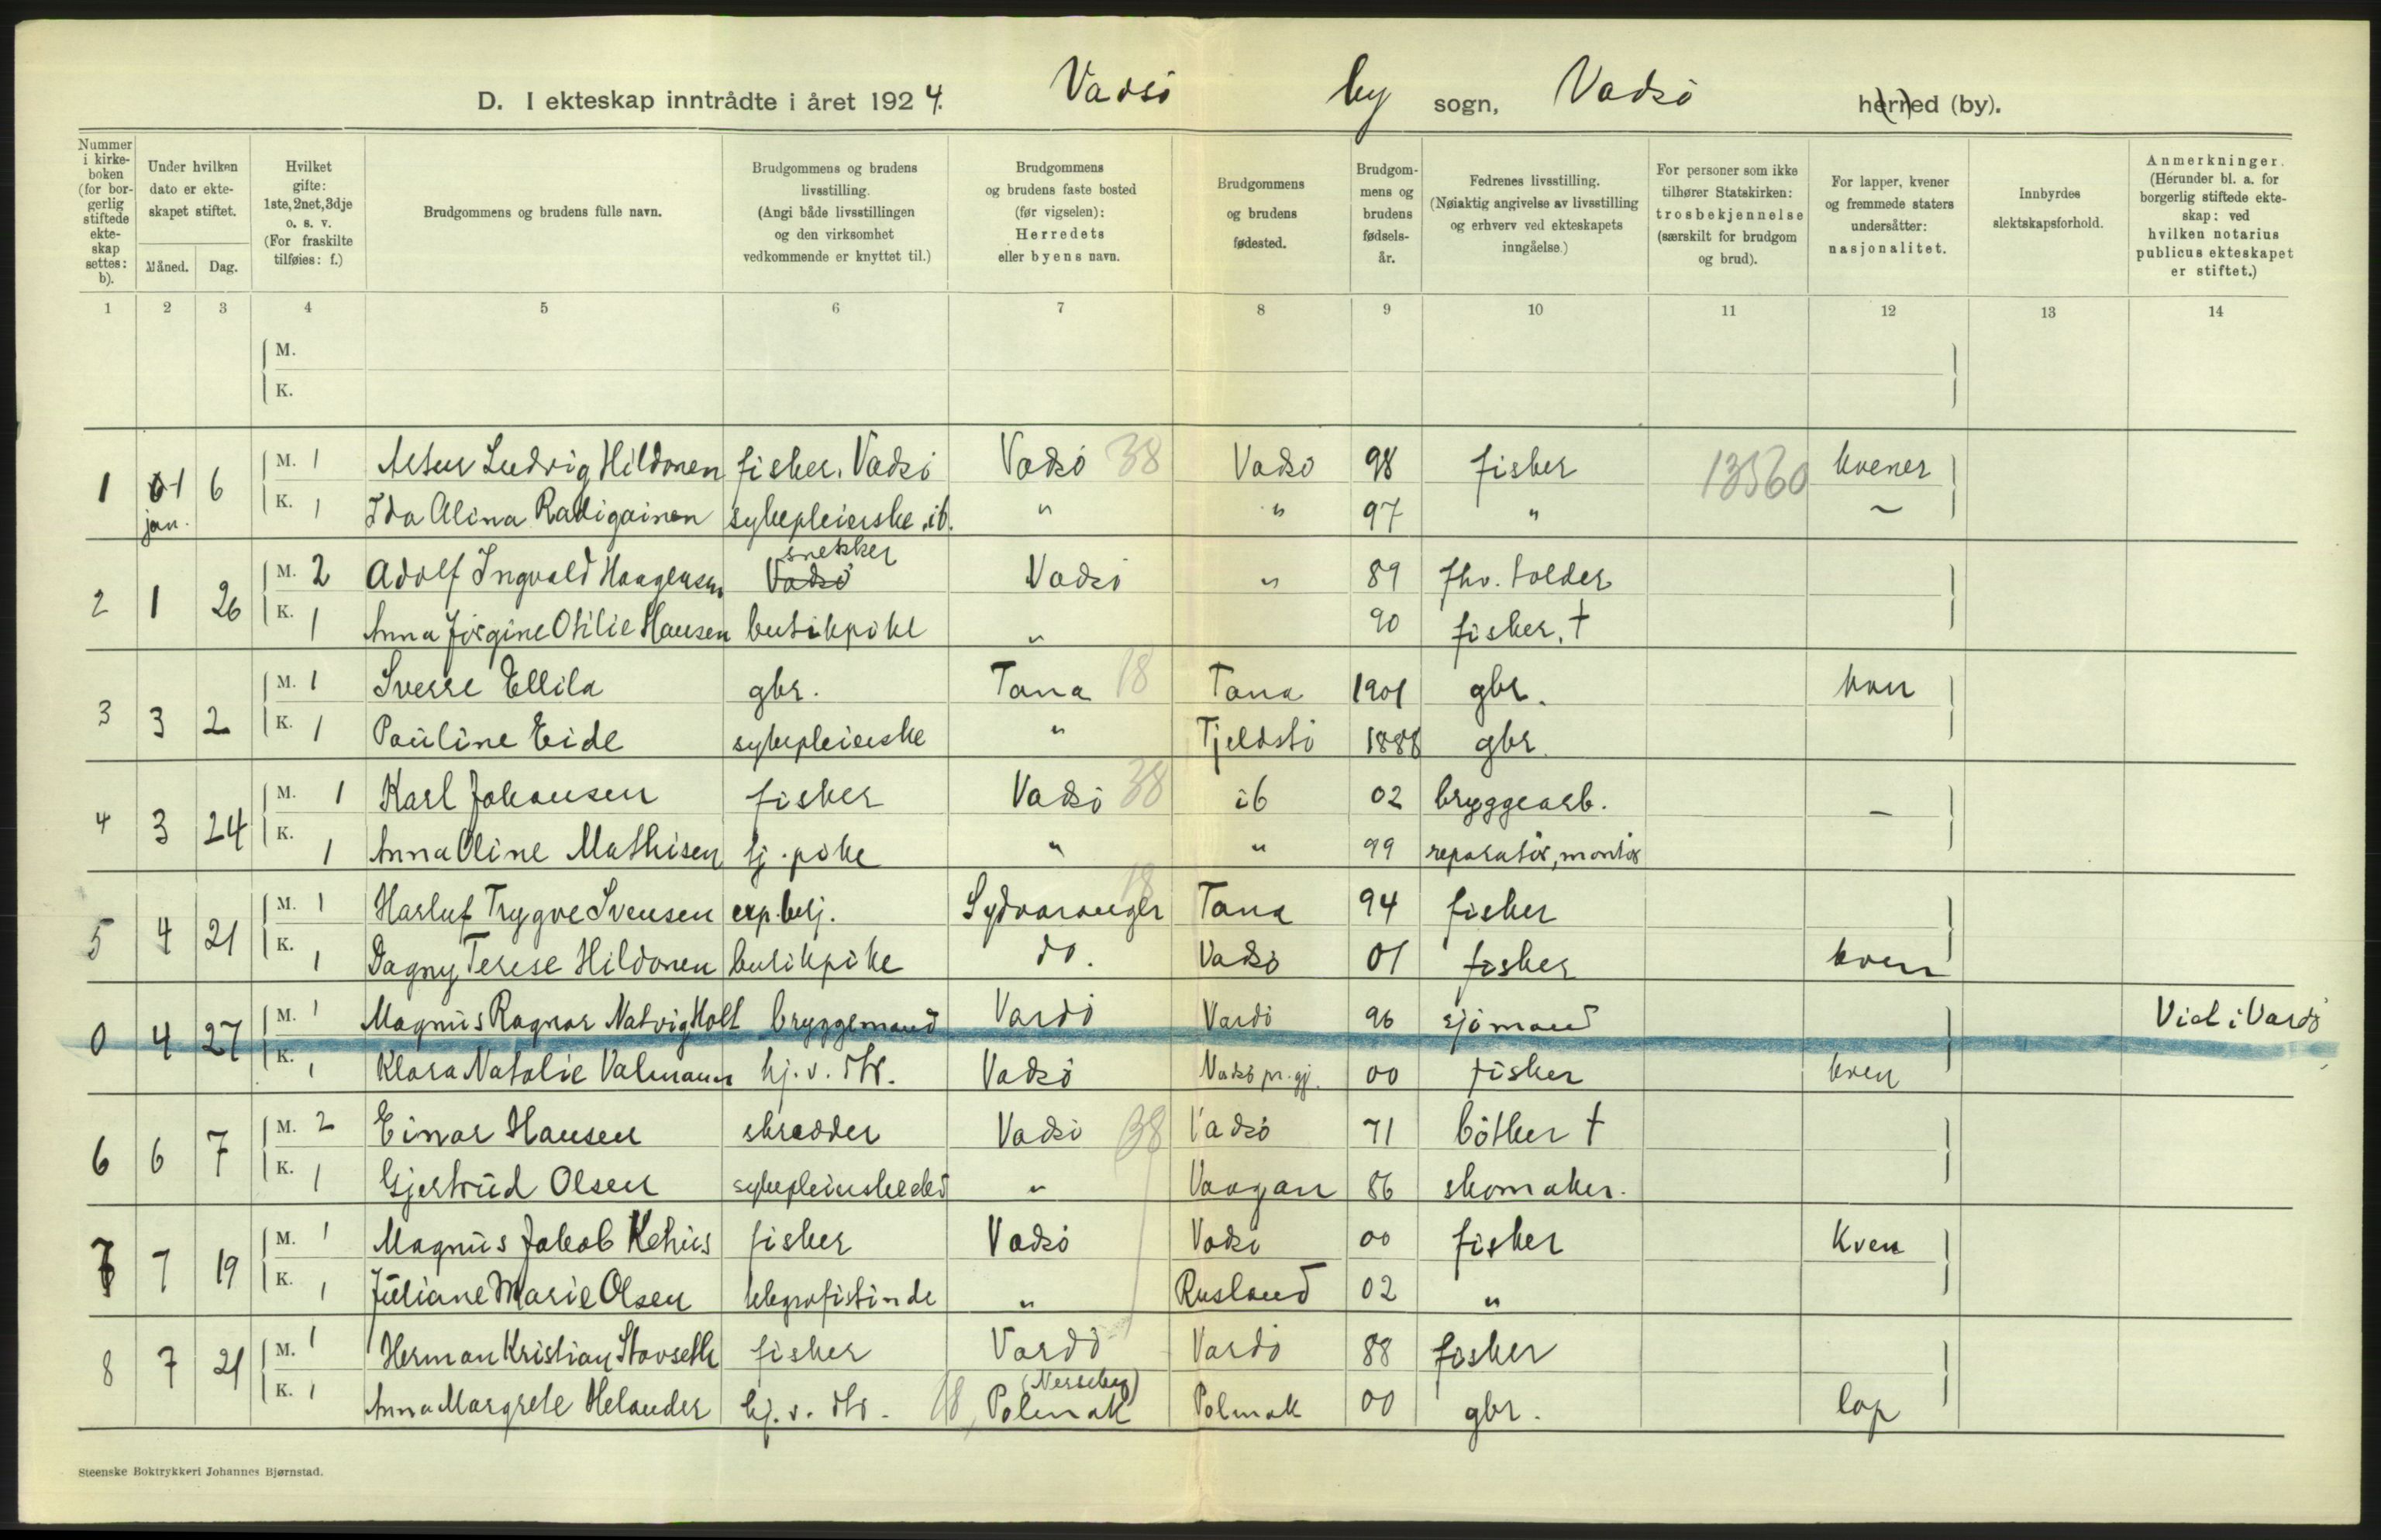 D. I ekteskap inntrådte i året 1924. Vadsö by sogn, Vadsö herred (by).
Nummer i kirkeboken (for borgerlig stiftede ekteskap settes: b).
Under hvilken dato er ekteskapet stiftet.
Måned. Dag.
Hvilket gifte: 1ste, 2net, 3dje o. s. v. (For fraskilte tilføies: f.)
Brudgommens og brudens fulle navn.
Brudgommens og brudens livsstilling. (Angi både livsstillingen og den virksomhet vedkommende er knyttet til.)
Brudgommens og brudens faste bosted (før vigselen): Herredets eller byens navn.
Brudgommens og brudens fødested.
Brudgommens og brudens fødselsår.
Fedrenes livsstilling. (Nøiaktig angivelse av livsstilling og erhverv ved ekteskapets inngåelse.)
For personer som ikke tilhører Statskirken: trosbekjennelse (særskilt for brudgom og brud).
For lapper, kvener og fremmede staters undersåtter: nasjonalitet.
Innbyrdes slektskapsforhold.
Anmerkninger. (Herunder bl. a. for borgerlig stiftede ekteskap: ved hvilken notarius publicus ekteskapet er stiftet.)
1 2 3 4 5 6 7 8 9 10 11 12 13 14
M.
K.
1 1 6 M. 1 Artur Ludvig Hildonen fisker, Vadsö Vadsö 38 Vadsö 98 fisker 13560 kvener
jan. K. 1 Ida Alina Radigainen sykepleierske, ib. " " 97 " ~
snekker
2 1 26 M. 2 Adolf Ingvald Haagensen Vadsö Vadsö " 89 fhv. tolder
K. 1 Anna Jörgine Otilie Hansen butikpike " 90 fisker, †
3 3 2 M. 1 Sverre Ellila gbr. Tana 18 Tana 1901 gbr. kven
K. 1 Pauline Eide sykepleierske " Tjeldstö 1888 gbr.
4 3 24 M. 1 Karl Johansen fisker Vadsö 38 ib 02 bryggearb. –
K. 1 Anna Oline Mathisen tj. pike " " 99 reparatör, montör
5 4 21 M. 1 Harluf Trygve Svensen exp. betj. Sydvaranger 18 Tana 94 fisker
K. 1 Dagny Terese Hildonen butikpike do. Vadsö 01 fisker kven
0 4 27 M. 1 Magnus Ragnar Natvig Holt bryggemand Vardö Vardö 96 sjömand Viel i Vardö
K. 1 Klara Natalie Valmann hj. v. dtr. Vadsö Vadsö pr.gj. 00 fisker kven
6 6 7 M. 2 Einar Hansen skrædder Vadsö 38 Vadsö 71 bötker †
K. 1 Gjertrud Olsen " Vaagan 86 skomaker.
7 7 19 M. 1 Magnus Jakob Kehus fisker Vadsö Vadsö 00 fisker Kven
K. 1 Juliane Marie Olsen telegrafistinde " Rusland 02 "
8 7 21 M. 1 Herman Kristian Stovseth fisker Vardö Vardö 88 fisker
(Nesseby)
K. 1 Anna Margrete Helander hj. v. dtr. 18, Polmak Polmak 00 gbr. lap
Steenske Boktrykkeri Johannes Bjørnstad.